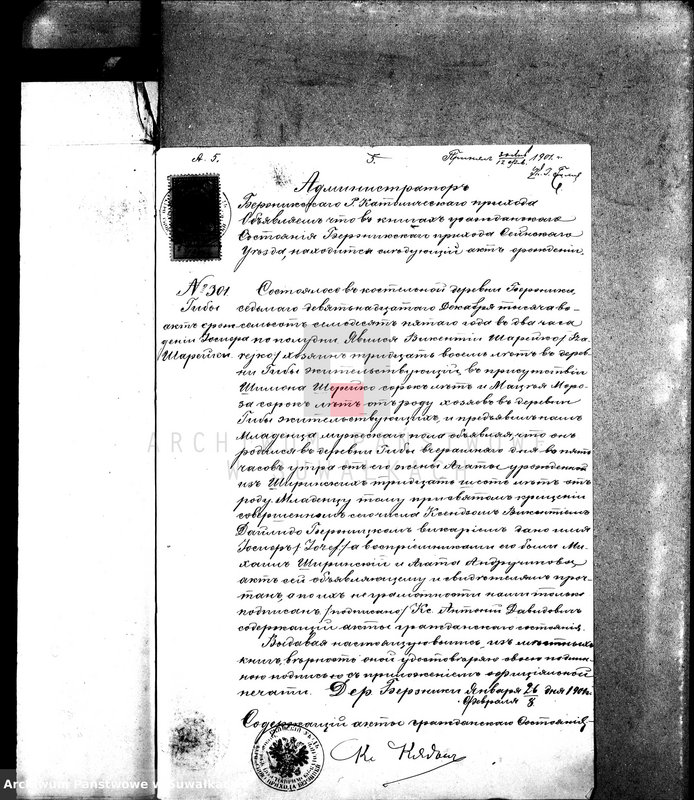 А 5.
5.
Принял 1901 г.
Администраторъ
Бержникскаго Р. Католическаго прихода
Объявляетъ что въ книгахъ гражданскаго
Состоянія Бержникскаго прихода Сейнскаго
Уѣзда, находится слѣдующій актъ орожденіи.
№ 301
Гибы
актъ рож-
деніи Іосифа
Шарейко
Состоялось въ костельной деревни Бержники,
седьмаго девятнадцатаго Декабря тысяча во-
семьсотъ семьдесятъ пятаго года въ два часа
по полудни. Явился Викентій Шарейко
хозяинъ тридцать восемь лѣтъ въ дерев-
ни Гибы жительствующій, въ присутствіи
Шимона Шерейко сорокъ лѣтъ и Мацѣя Моро-
за сорокъ лѣтъ отъ роду хозяевъ въ деревни
Гибы жительствующихъ, и предъявилъ намъ
Младенца мужескаго пола объявляя, что онъ
родился въ деревни Гибы вчерашняго дня въ пять
часовъ утра отъ его жены Агаты урожденной
изъ Ширинскихъ тридцать шесть лѣтъ отъ
роду. Младенцу тому при святомъ крещеніи
совершенномъ сего числа Ксендзомъ Викентіемъ
Дайлидо Бержницкимъ викаріемъ дано имя
Іосифъ /Jozef/ а воспріемниками его были Ми-
хаилъ Ширинскій и Агата Андручикова
актъ сей объявляющему и свидѣтелямъ проч-
танъ, а по ихъ не грамотности нами только
подписанъ /подписано/ Кс. Антоній Давидовичъ
содержащій акты гражданскаго состоянія.
Выдавая настоящую выпись, изъ мѣстныхъ
книгъ, вѣрность оной удостовѣряю своею подпис-
ною подписью съ приложеніемъ оффиціальной
печати. Дер. Бержники Января 26 дня 1901 г.
Февраля 8
Содержащій акты гражданскаго Состоянія
Кс.
ARCHIWUM PAŃSTWOWE
W SUWAŁKACH
Archiwum Państwowe w Suwałkach